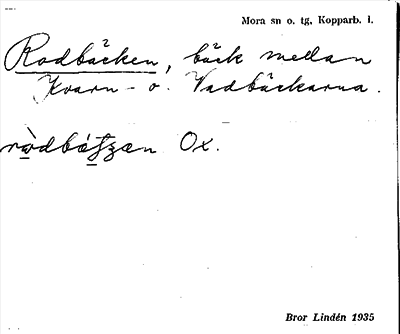 Mora sn o. tg, Kopparb. l.
Rodbäcken, bäck mellan
Kvarn- o. Vadbäckarna.
Ox.
Bror Lindén 1935